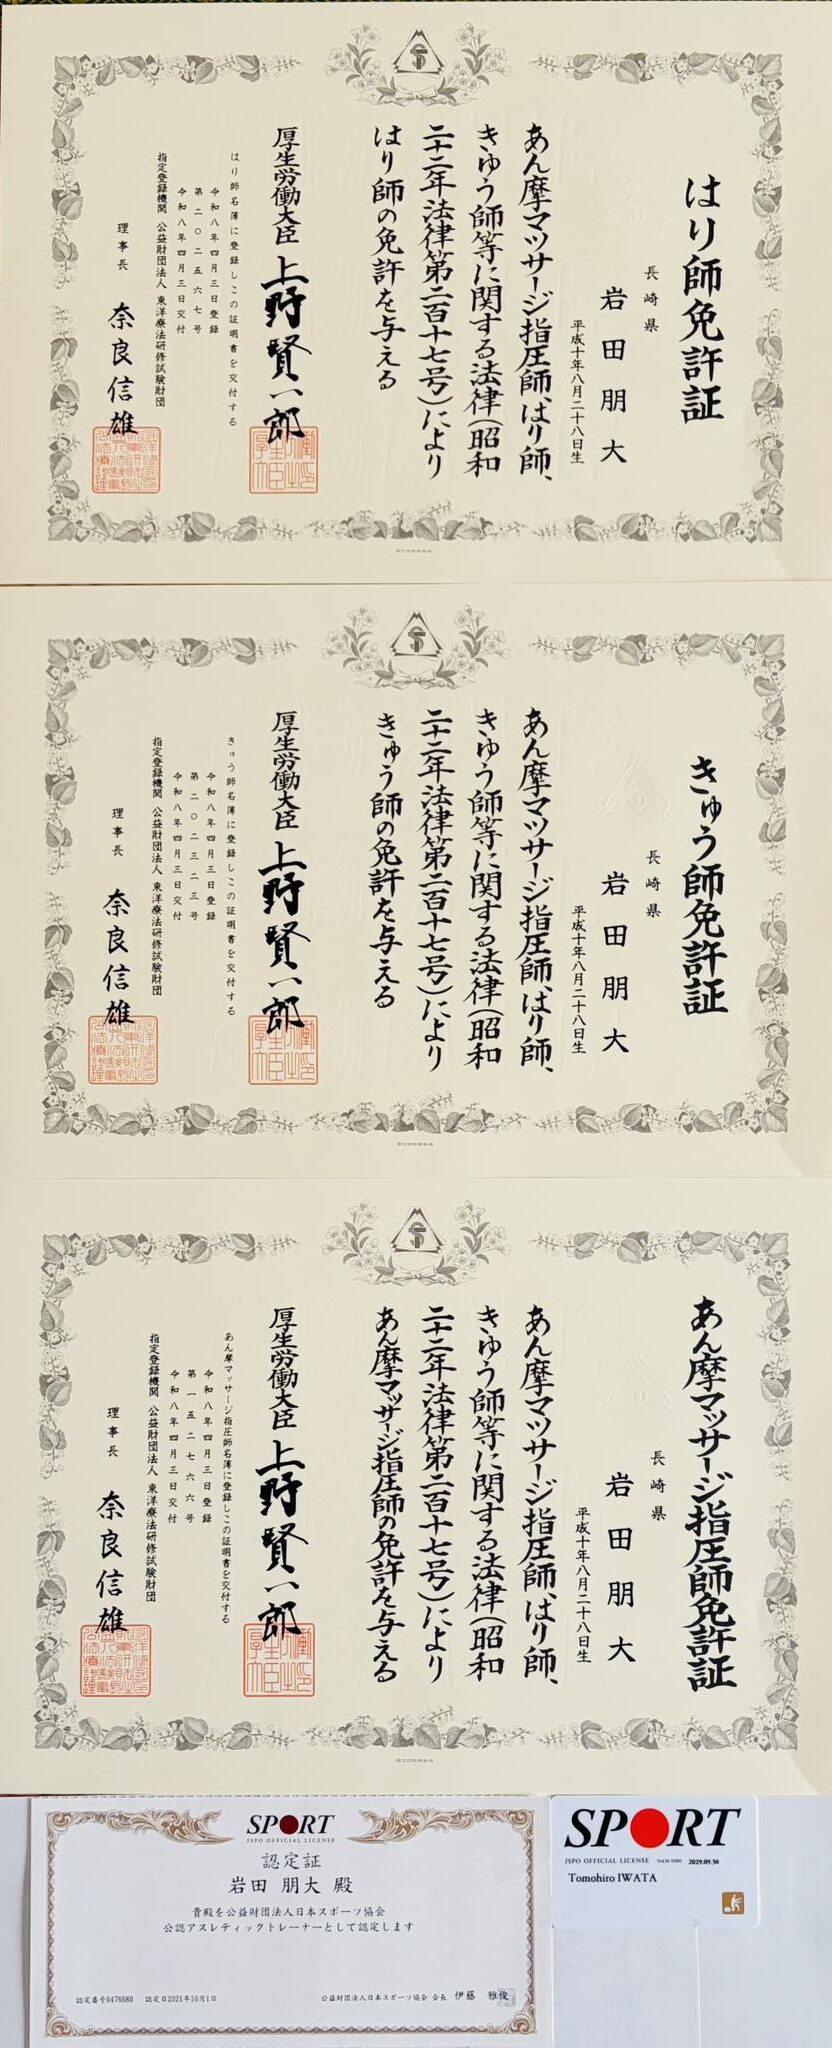 はり師免許証
長崎県
岩田朋大
平成十年八月二十八日生
あん摩マッサージ指圧師、はり師、
きゅう師等に関する法律(昭和
二十二年法律第二百十七号)により
はり師の免許を与える
厚生労働大臣 上野賢一郎
はり師名簿に登録しこの証明書を交付する
令和八年四月三日登録
第二〇二五六七号
令和八年四月三日交付
指定登録機関 公益財団法人 東洋療法研修試験財団
理事長 奈良信雄
きゅう師免許証
長崎県
岩田朋大
平成十年八月二十八日生
あん摩マッサージ指圧師、はり師、
きゅう師等に関する法律(昭和
二十二年法律第二百十七号)により
きゅう師の免許を与える
厚生労働大臣 上野賢一郎
きゅう師名簿に登録しこの証明書を交付する
令和八年四月三日登録
第二〇二三二三号
令和八年四月三日交付
指定登録機関 公益財団法人 東洋療法研修試験財団
理事長 奈良信雄
あん摩マッサージ指圧師免許証
長崎県
岩田朋大
平成十年八月二十八日生
あん摩マッサージ指圧師、はり師、
きゅう師等に関する法律(昭和
二十二年法律第二百十七号)により
あん摩マッサージ指圧師の免許を与える
厚生労働大臣 上野賢一郎
あん摩マッサージ指圧師名簿に登録しこの証明書を交付する
令和八年四月三日登録
第一五二七六六号
令和八年四月三日交付
指定登録機関 公益財団法人 東洋療法研修試験財団
理事長 奈良信雄
SPORT
JSPO OFFICIAL LICENSE
認定証
岩田 朋大 殿
貴殿を公益財団法人日本スポーツ協会
公認アスレティックトレーナーとして認定します
認定番号0476680 認定日2021年10月1日
公益財団法人日本スポーツ協会 会長 伊藤 雅俊
SPORT
JSPO OFFICIAL LICENSE VALID THRU 2029.09.30
Tomohiro IWATA